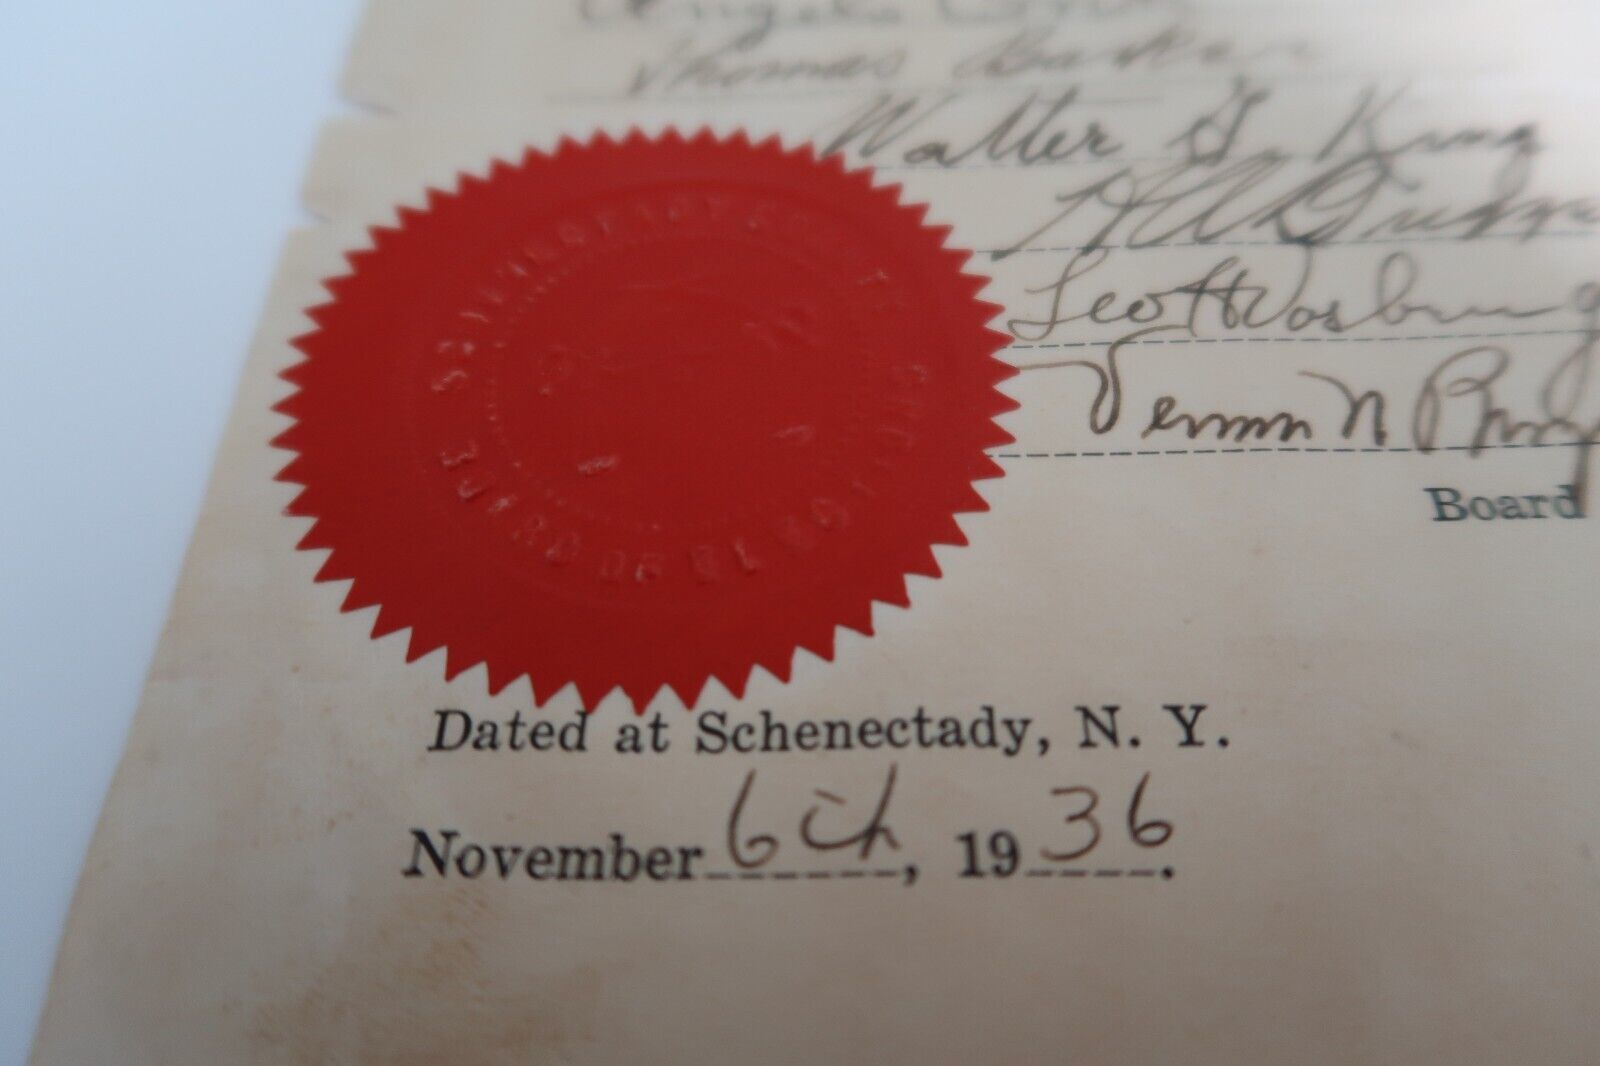 Angelo
Thomas Baker
Walter G. King
Leo H Wasburng
Vernon N
Board
SCHENECTADY COUNTY
BOARD OF ELECTIONS
Dated at Schenectady, N. Y.
November 6th, 1936.